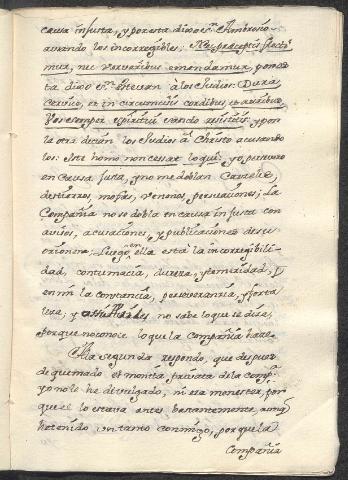 causa injusta, y por esta dijo Sn. Ambrosio
acusando los incorregibles: Nec præceptis flecti
mur, nec verberibus emendamur, y por es
ta dijo Sn. Estevan à los Judios: Dura
cervice, et in circumcisis cordibus, et auribus
Vos semper spiritui sancto resistitis: y por
la otra decian los Judios à Christo acusando
los: Iste homo non cessat loqui: yo persevero
en causa justa, y no me doblan Carceles,
destierros, mofas, venenos, persuaciones; La
Compañia no se dobla en causa injusta con
avisos, acusaciones, y publicaciones de su
Luego en ella està la incorregibili-
dad, contumacia, dureza, y temeridad, y
en mi la constancia, perseverancia, y forta
leza, y no sabe lo que se dice,
porque no conoce lo que la Compañia hace.
A la segunda respondo, que despues
de quemado el monita privata de la Compa.
yo no le he divulgado, ni era menester, por
que el lo estava antes bastantemente, aunq
he tenido un tanto conmigo, porque la
Compañia